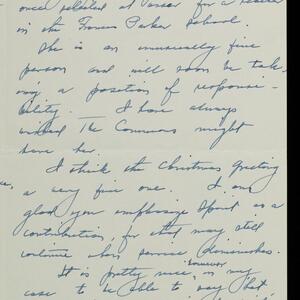 once selected at Vassar for a teacher
in the Francis Parker School.
She is an unusually fine
person and will soon be tak-
ing a position of responsi-
bility. — I have always
wished The Commons might
have her.
I think the Christmas greeting
a very fine one. I am
glad you emphasize spirit as a
contribution, for that may still
continue when service diminishes.
It is pretty nice, however, in my
case to be able to say that